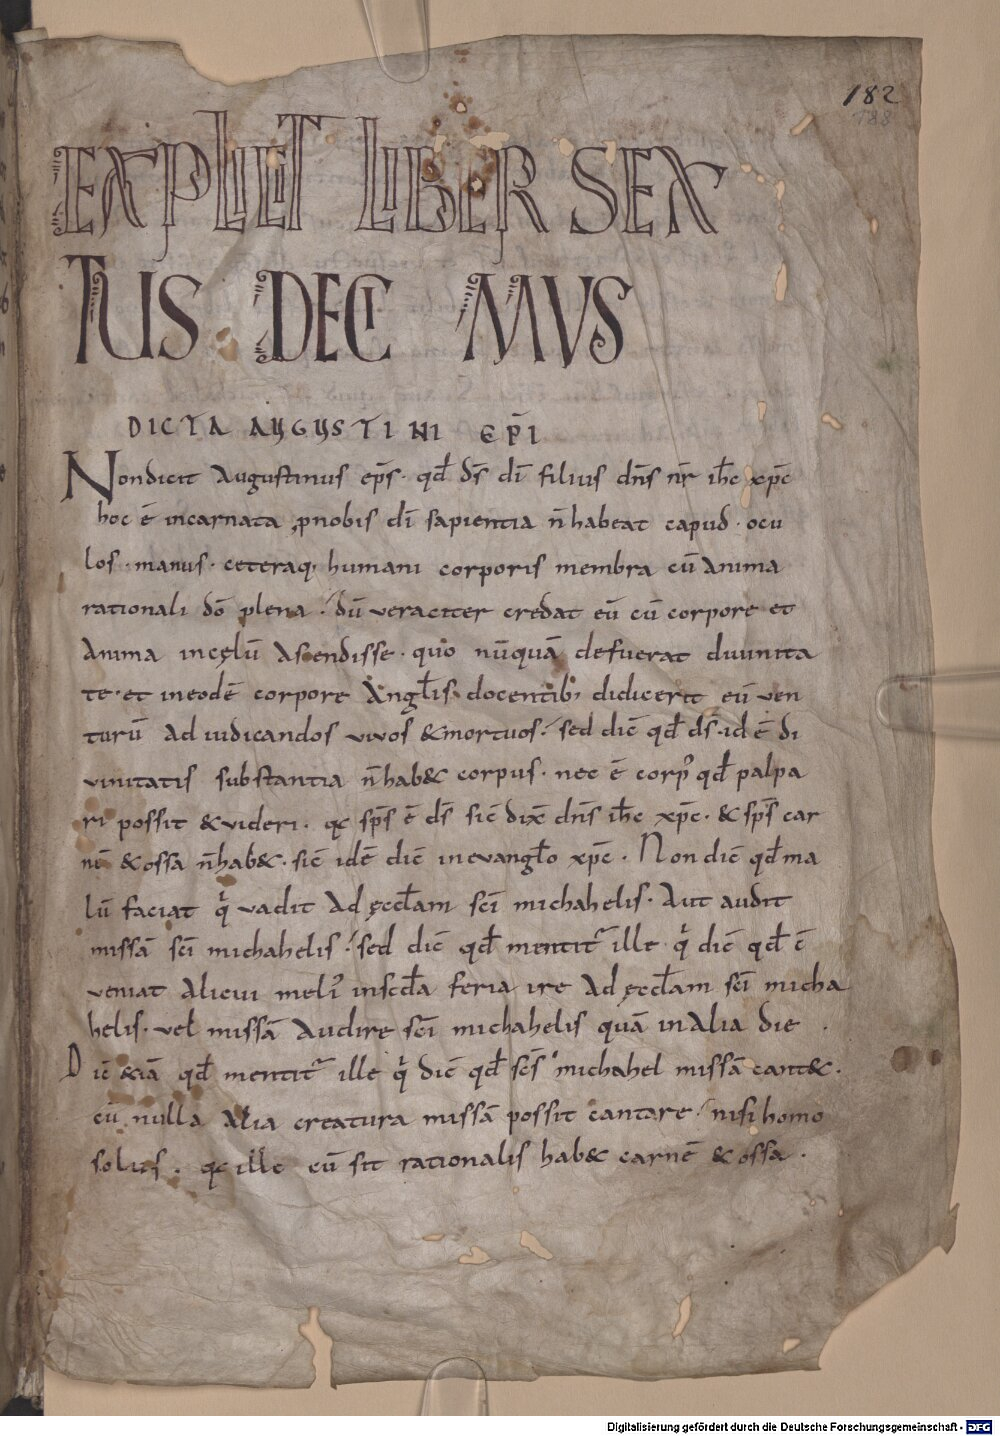 182
188
EXPLICIT LIBER SEX
TUS DECI MVS
DICTA AUGUSTINI EP̄I
Non dicit Augustinus ep̄s · qd̄ d̄s dī filius dn̄s nr̄ ih̄c xp̄c
hoc ē incarnata p̱nobis dī sapientia n̄ habeat capud · ocu
los · manus · ceteraq; humani corporis membra cū anima
rationali dō plena · dū veraciter credat eū cū corpore et
anima incęlū ascendisse · quo nūquā defuerat diuinita
te · et ineodē corpore Angłis docentib; didicerit eū uen
turū ad iudicandos uiuos & mortuos · sed dic̄ qd̄ ds̄ · id ē di
uinitatis substantia n̄ hab& corpus · nec ē corp᾿ qd̄ palpa
ri possit & uideri · qc sp̄s ē ds̄ sic̄ dix̄ dn̄s ih̄c xp̄c · & sp̄s car
nē & ossa n̄ hab& · sic̄ idē dic̄ in euangło xp̄c · Non dic̄ qd̄ ma
lū faciat q̇ uadit ad ęccłam sc̄i michahelis · Aut audit
missā sc̄i michahelis · sed dic̄ qd̄ mentit᾿ ille q̇ dic̄ qd̄ c̄
ueniat alicui meli᾿ insc̄da feria ire ad ęccłam sc̄i micha
helis · uel missā audire sc̄i michahelis quā in alia die ·
Dic̄ &iā qd̄ mentit᾿ ille q̇ dic̄ qd̄ sc̄s michahel missā cant& ·
cū nulla alia creatura missā possit cantare · nisi homo
solus · qc ille cū sit rationalis hab& carnē & ossa ·
Digitalisierung gefördert durch die Deutsche Forschungsgemeinschaft - DFG